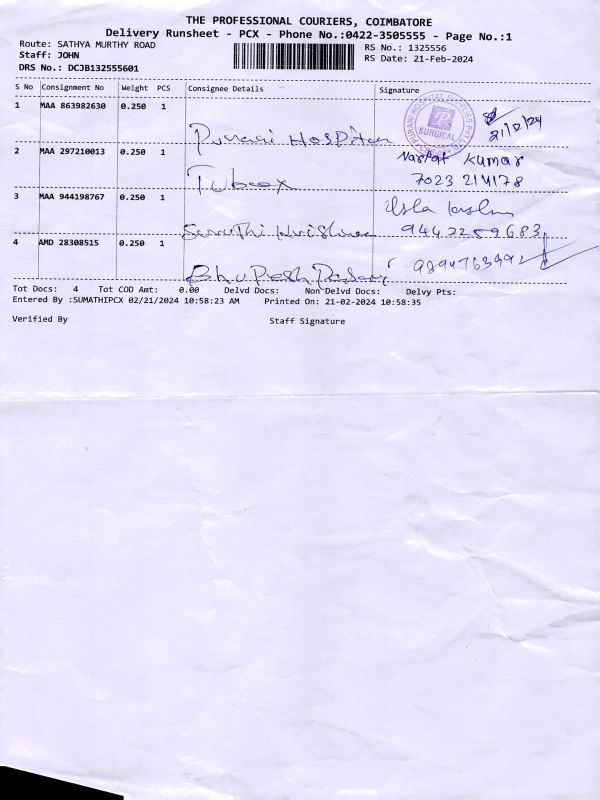 THE PROFESSIONAL COURIERS, COIMBATORE
Delivery Runsheet - PCX - Phone No.:0422-3505555 - Page No.:1
Route: SATHYA MURTHY ROAD
RS No.: 1325556
Staff: JOHN
RS Date: 21-Feb-2024
DRS No.: DCJB132555601
S No Consignment No Weight PCS Consignee Details Signature
1 MAA 863982630 0.250 1
SURGICAL
21/2/24
Hospital
2 MAA 297210013 0.250 1
Narpat Kumar
7023 214178
Tubeex
3 MAA 944198767 0.250 1
9442259683
4 AMD 28308515 0.250 1
Bhupesh
Tot Docs: 4 Tot COD Amt: 0.00 Delvd Docs: Non Delvd Docs: Delvy Pts:
Entered By :SUMATHIPCX 02/21/2024 10:58:23 AM Printed On: 21-02-2024 10:58:35
Verified By Staff Signature